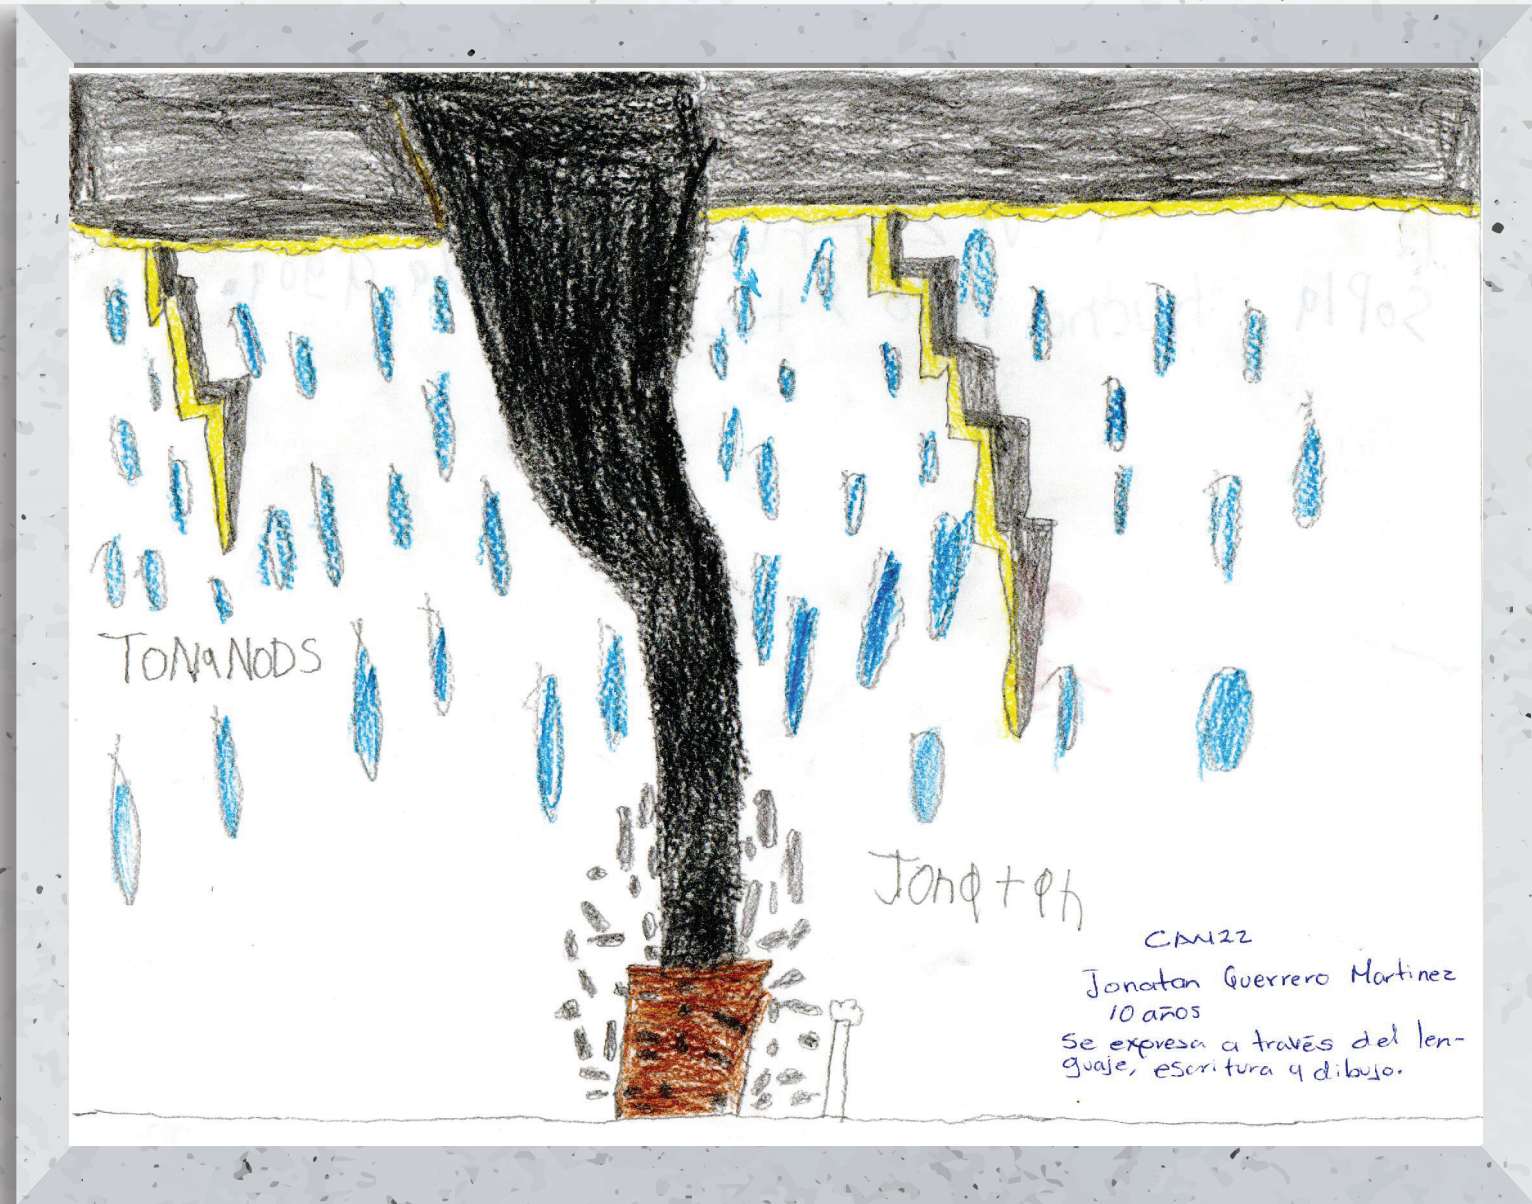 TONaNODS
Jonatan
CAM22
Jonatan Guerrero Martinez
10 años
se expresa a través del len-
guaje, escritura y dibujo.